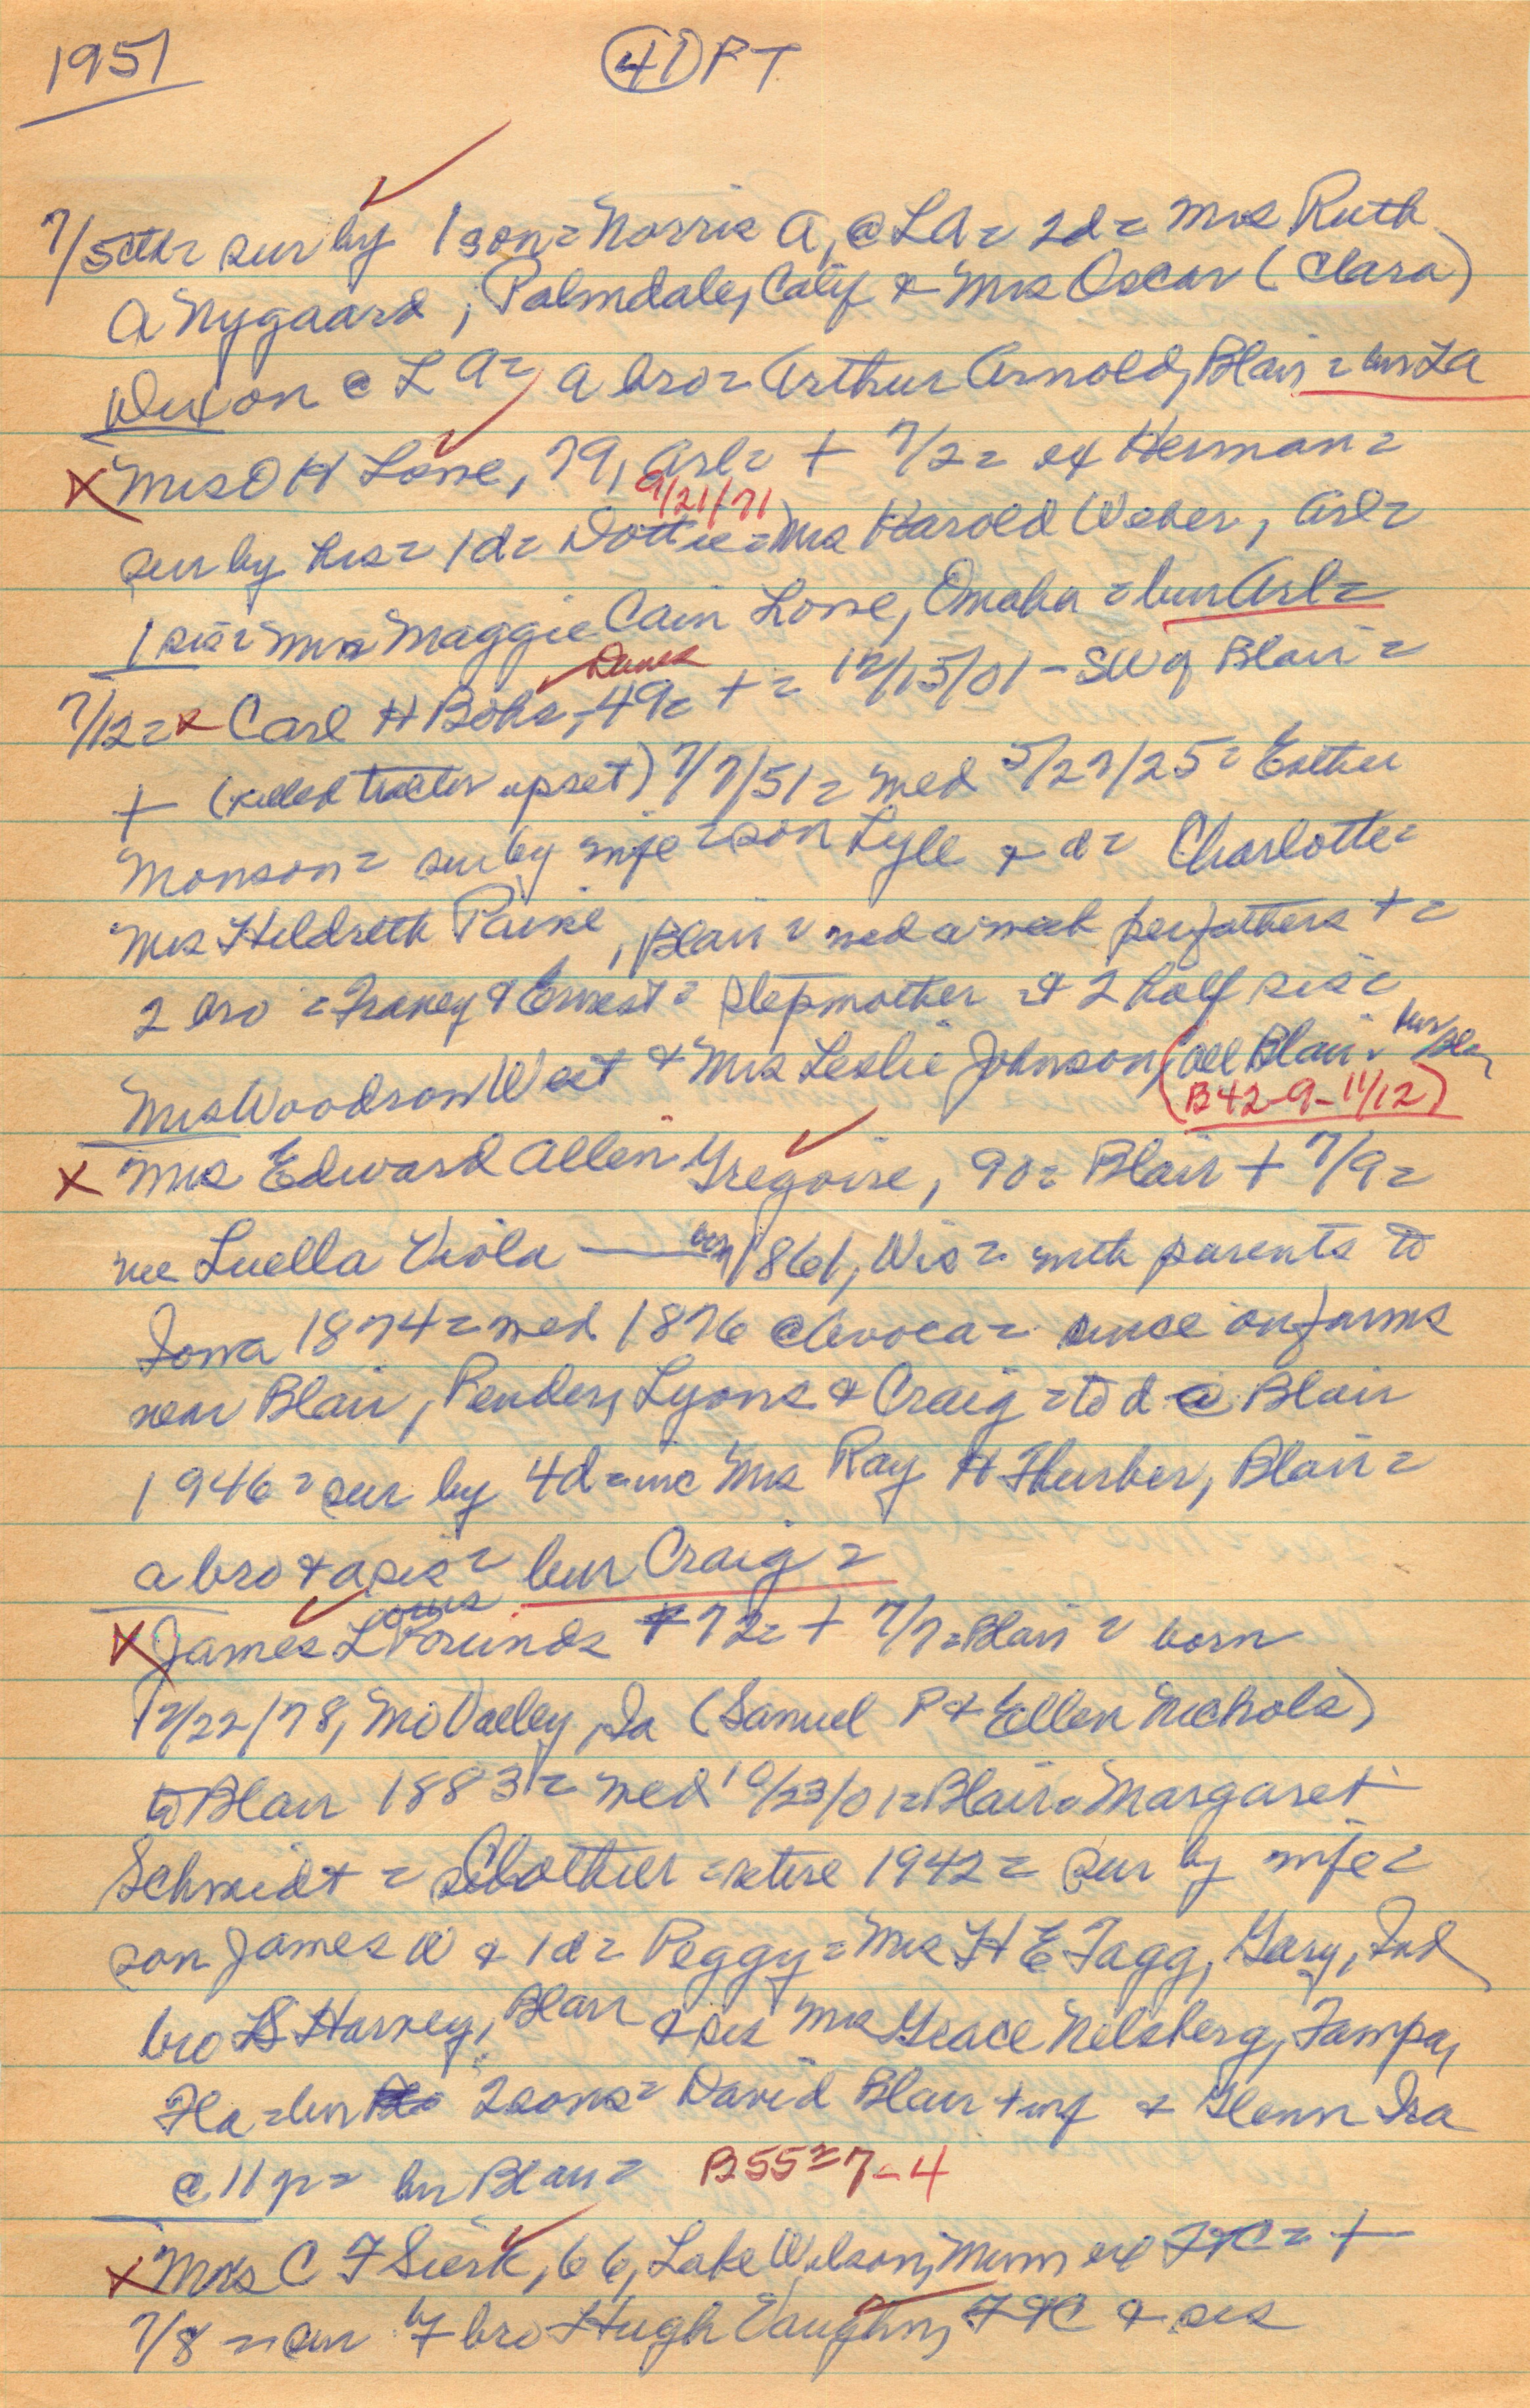 1951
41 PT
7/5 ctd= sur by 1 son= Norris A, @ LA= 2d= Mrs Ruth
A Nygaard, Palmdale, Calif & Mrs Oscar (Clara)
Dixon @ LA= a bro= Arthur Arnold, Blair = bur LA
x Mrs O H Losse, 79, Arl= + 7/2= ex Herman=
9/21/71
sur by hus= 1d= Dottie= Mrs Harold Weber, Arl=
1 sis= Mrs Maggie Cain Losse, Omaha = bur Arl=
Danes
7/12= x Carl H Bohs, 49= += 12/15/01 - SW of Blair=
+ (killed tractor upset) 7/7/51= med 5/27/25= Esther
Monson= sur by wife = son Lyle & d= Charlotte=
Mrs Hildreth Paine, Blair = med a week fathers +=
2 bro = Franey & Ernest= stepmother & 2 half sis=
Mrs Woodson West & Mrs Leslie Johnson, (all Blair= bur Bla
(B42-9-11/12)
x Mrs Edward Allen Gregoire, 90= Blair + 7/9=
nee Luella Viola — born 1861, Wis= with parents to
Iowa 1874= med 1876 @ Avoca= since on farms
near Blair, Pender, Lyons & Craig = to d @ Blair
1946= sur by 4d= inc Mrs Ray H Thurber, Blair=
a bro & a sis= bur Craig=
Louis
x James L Pounds 72= + 7/7= Blair= born
12/22/78, Mo Valley, Ia (Samuel P & Ellen Nichols)
to Blair 1883= med 10/23/01= Blair= Margaret
Schmidt = clothier = retire 1942= sur by wife=
son James W & 1d= Peggy= Mrs H E Tagg, Gary, Ind
bro S Harvey, Blair & sis Mrs Grace Nelsberg, Tampa,
Fla = bur 2 sons= David Blair + inf & Glenn Ira
@ 11 yr= bur Blair= B55=7-4
x Mrs C F Sierk, 66, Lake Wilson, Minn ex Ft C= +
7/8 = sur by bro Hugh Vaughn, Ft C & sis